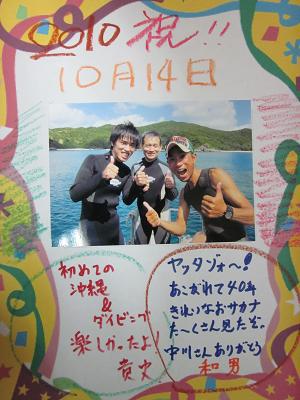 2010 祝!!
10月14日
初めての
沖縄
&
ダイビング
楽しかったよ!
貴史
ヤッタゾォ〜!
あこがれて40年
きれいなおサカナ
たーくさん見たぞ。
中川さんありがとう
和男